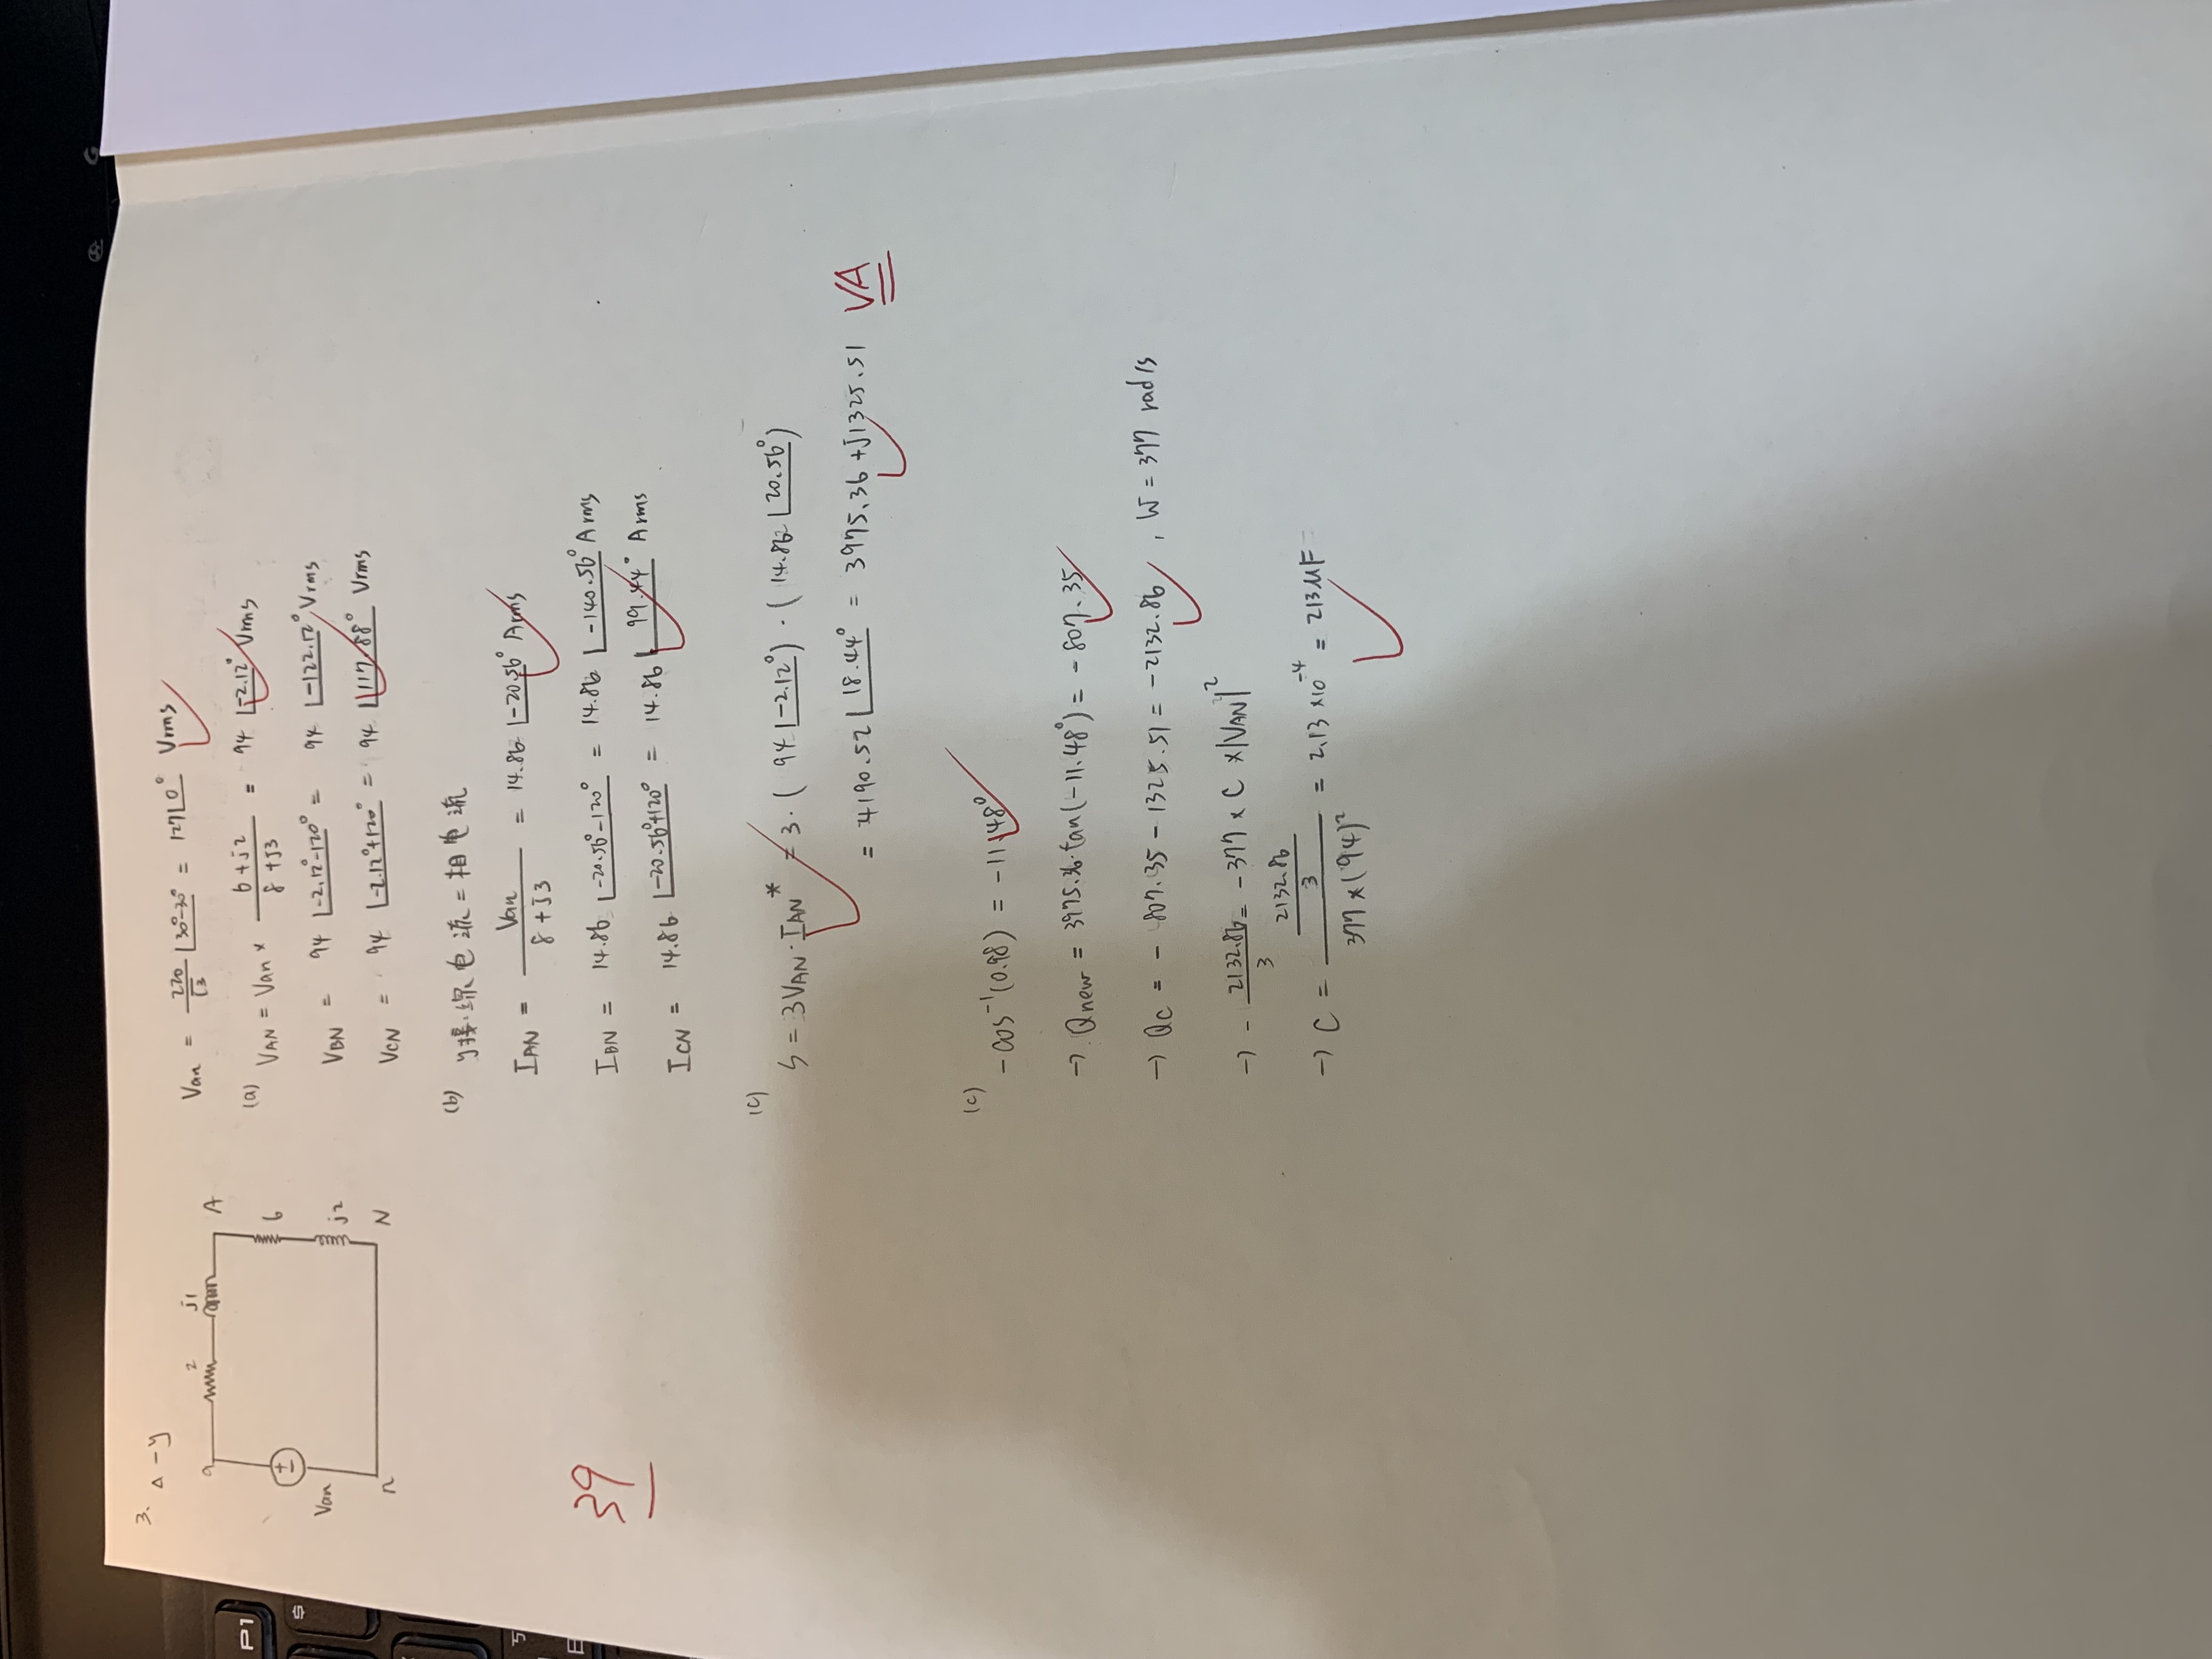 3. Δ-y
a
2
j1
A
6
j2
Van
n
N
Van = 220/√3 ∠30°-30° = 127∠0° Vrms
(a) VAN = Van × (6+j2)/(8+j3) = 94 ∠-2.12° Vrms
VBN = 94 ∠-2.12°-120° = 94 ∠-122.12° Vrms
VCN = 94 ∠-2.12°+120° = 94 ∠117.88° Vrms
(b) y接.線电流=相电流
IAN = Van/(8+j3) = 14.86 ∠-20.56° Arms
IBN = 14.86 ∠-20.56°-120° = 14.86 ∠-140.56° Arms
39
ICN = 14.86 ∠-20.56°+120° = 14.86 ∠99.44° Arms
(c)
S = 3VAN·IAN* = 3·(94∠-2.12°)·(14.86∠20.56°)
= 4190.52∠18.44° = 3975.36+j1325.51 VA
(c)
-cos⁻¹(0.98) = -11.48°
→ Qnew = 3975.36·tan(-11.48°) = -807.35
→ Qc = -807.35-1325.51 = -2132.86, W = 377 rad/s
→ -2132.86/3 = -377 × C ×|VAN|²
→ C = (2132.86/3)/(377×(94)²) = 2.13×10⁻⁴ = 213μF
P1
$
ㄎ
E